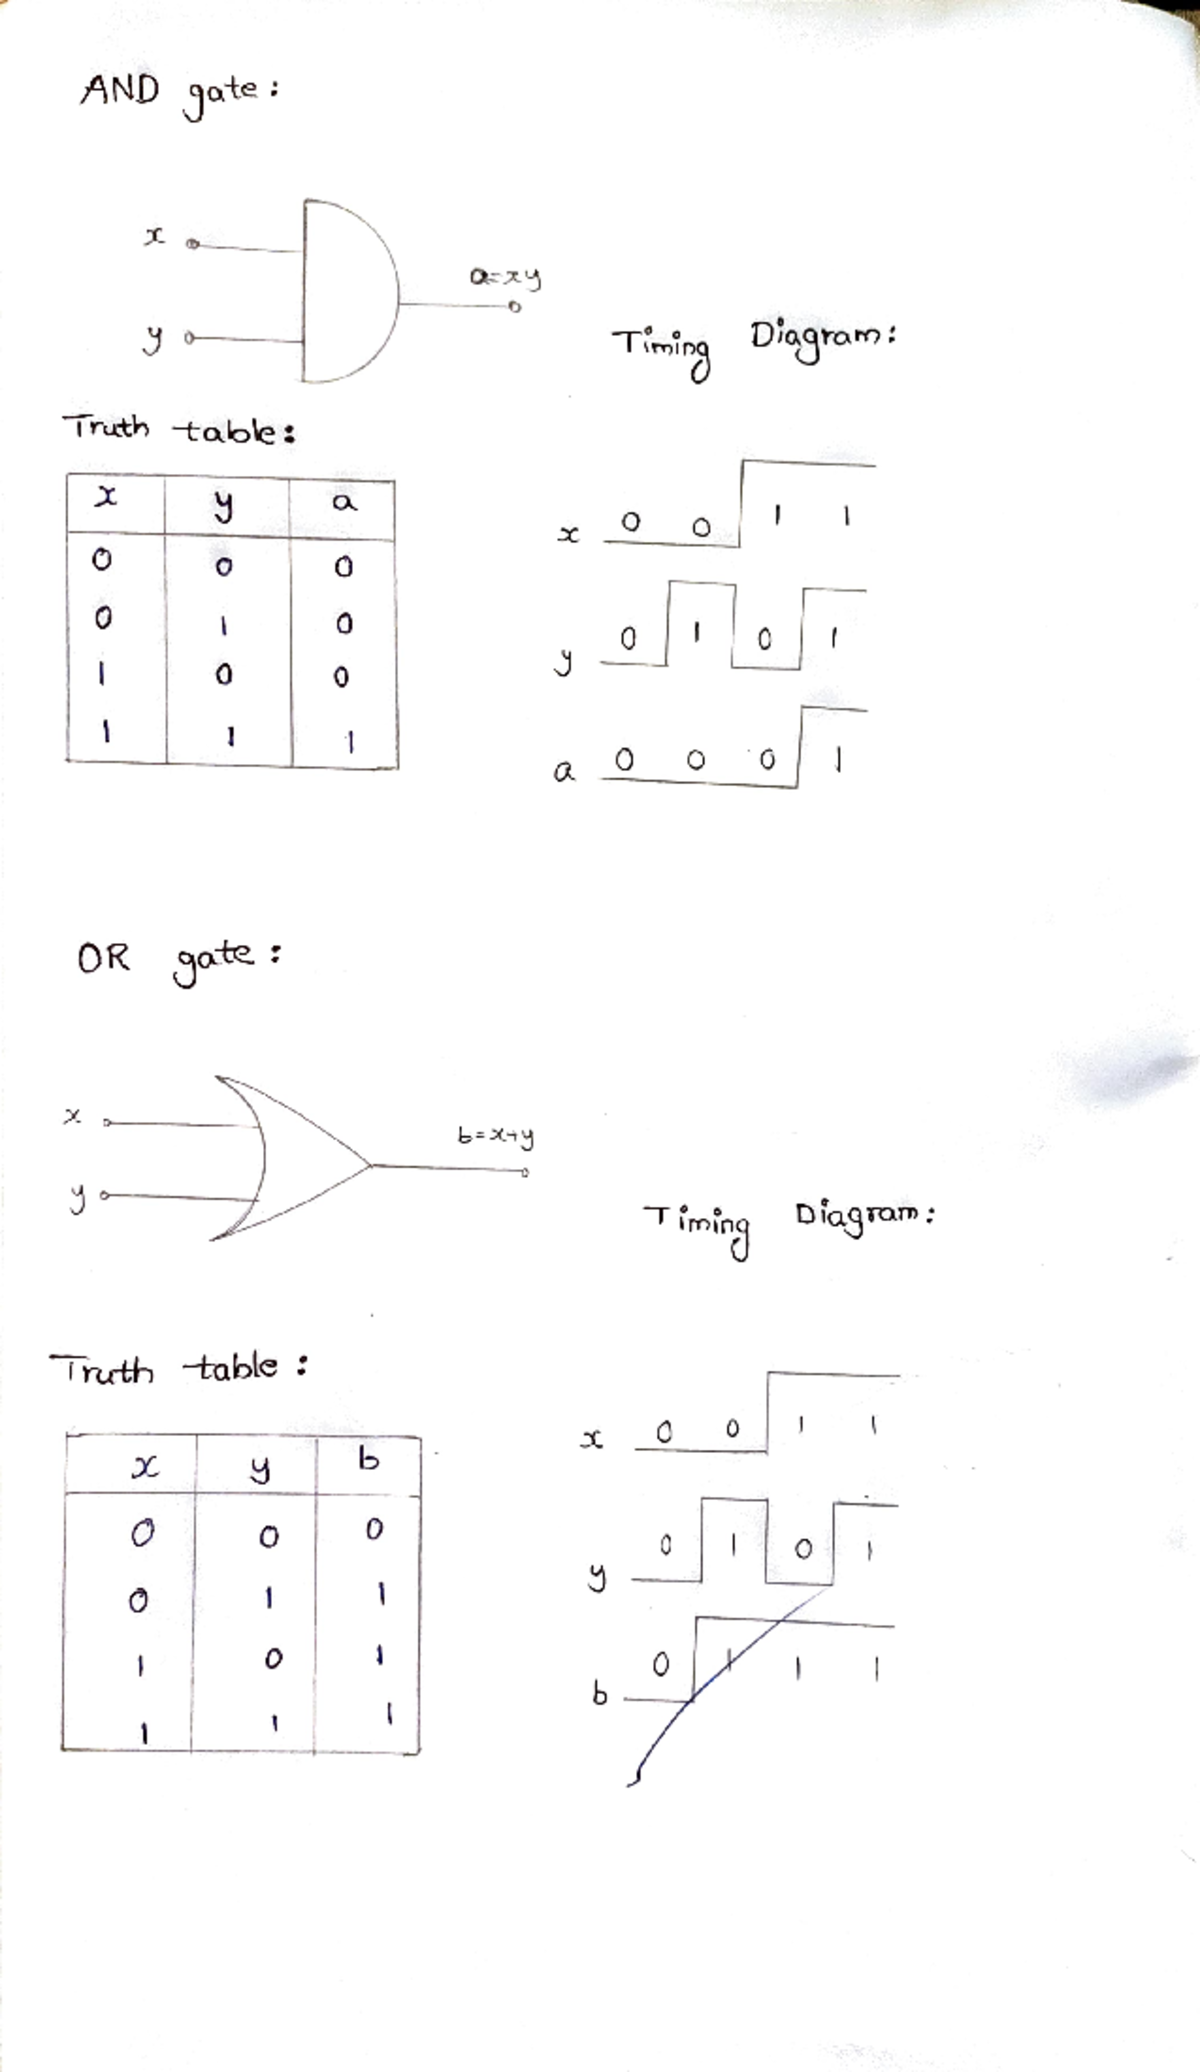 AND gate:
x
a=xy
y
Timing Diagram:
Truth table:
x y a
0 0 0
0 1 0
1 0 0
1 1 1
x 0 0 1 1
y 0 1 0 1
a 0 0 0 1
OR gate:
x
b=x+y
y
Timing Diagram:
Truth table:
x y b
0 0 0
0 1 1
1 0 1
1 1 1
x 0 0 1 1
y 0 1 0 1
b 0 1 1 1